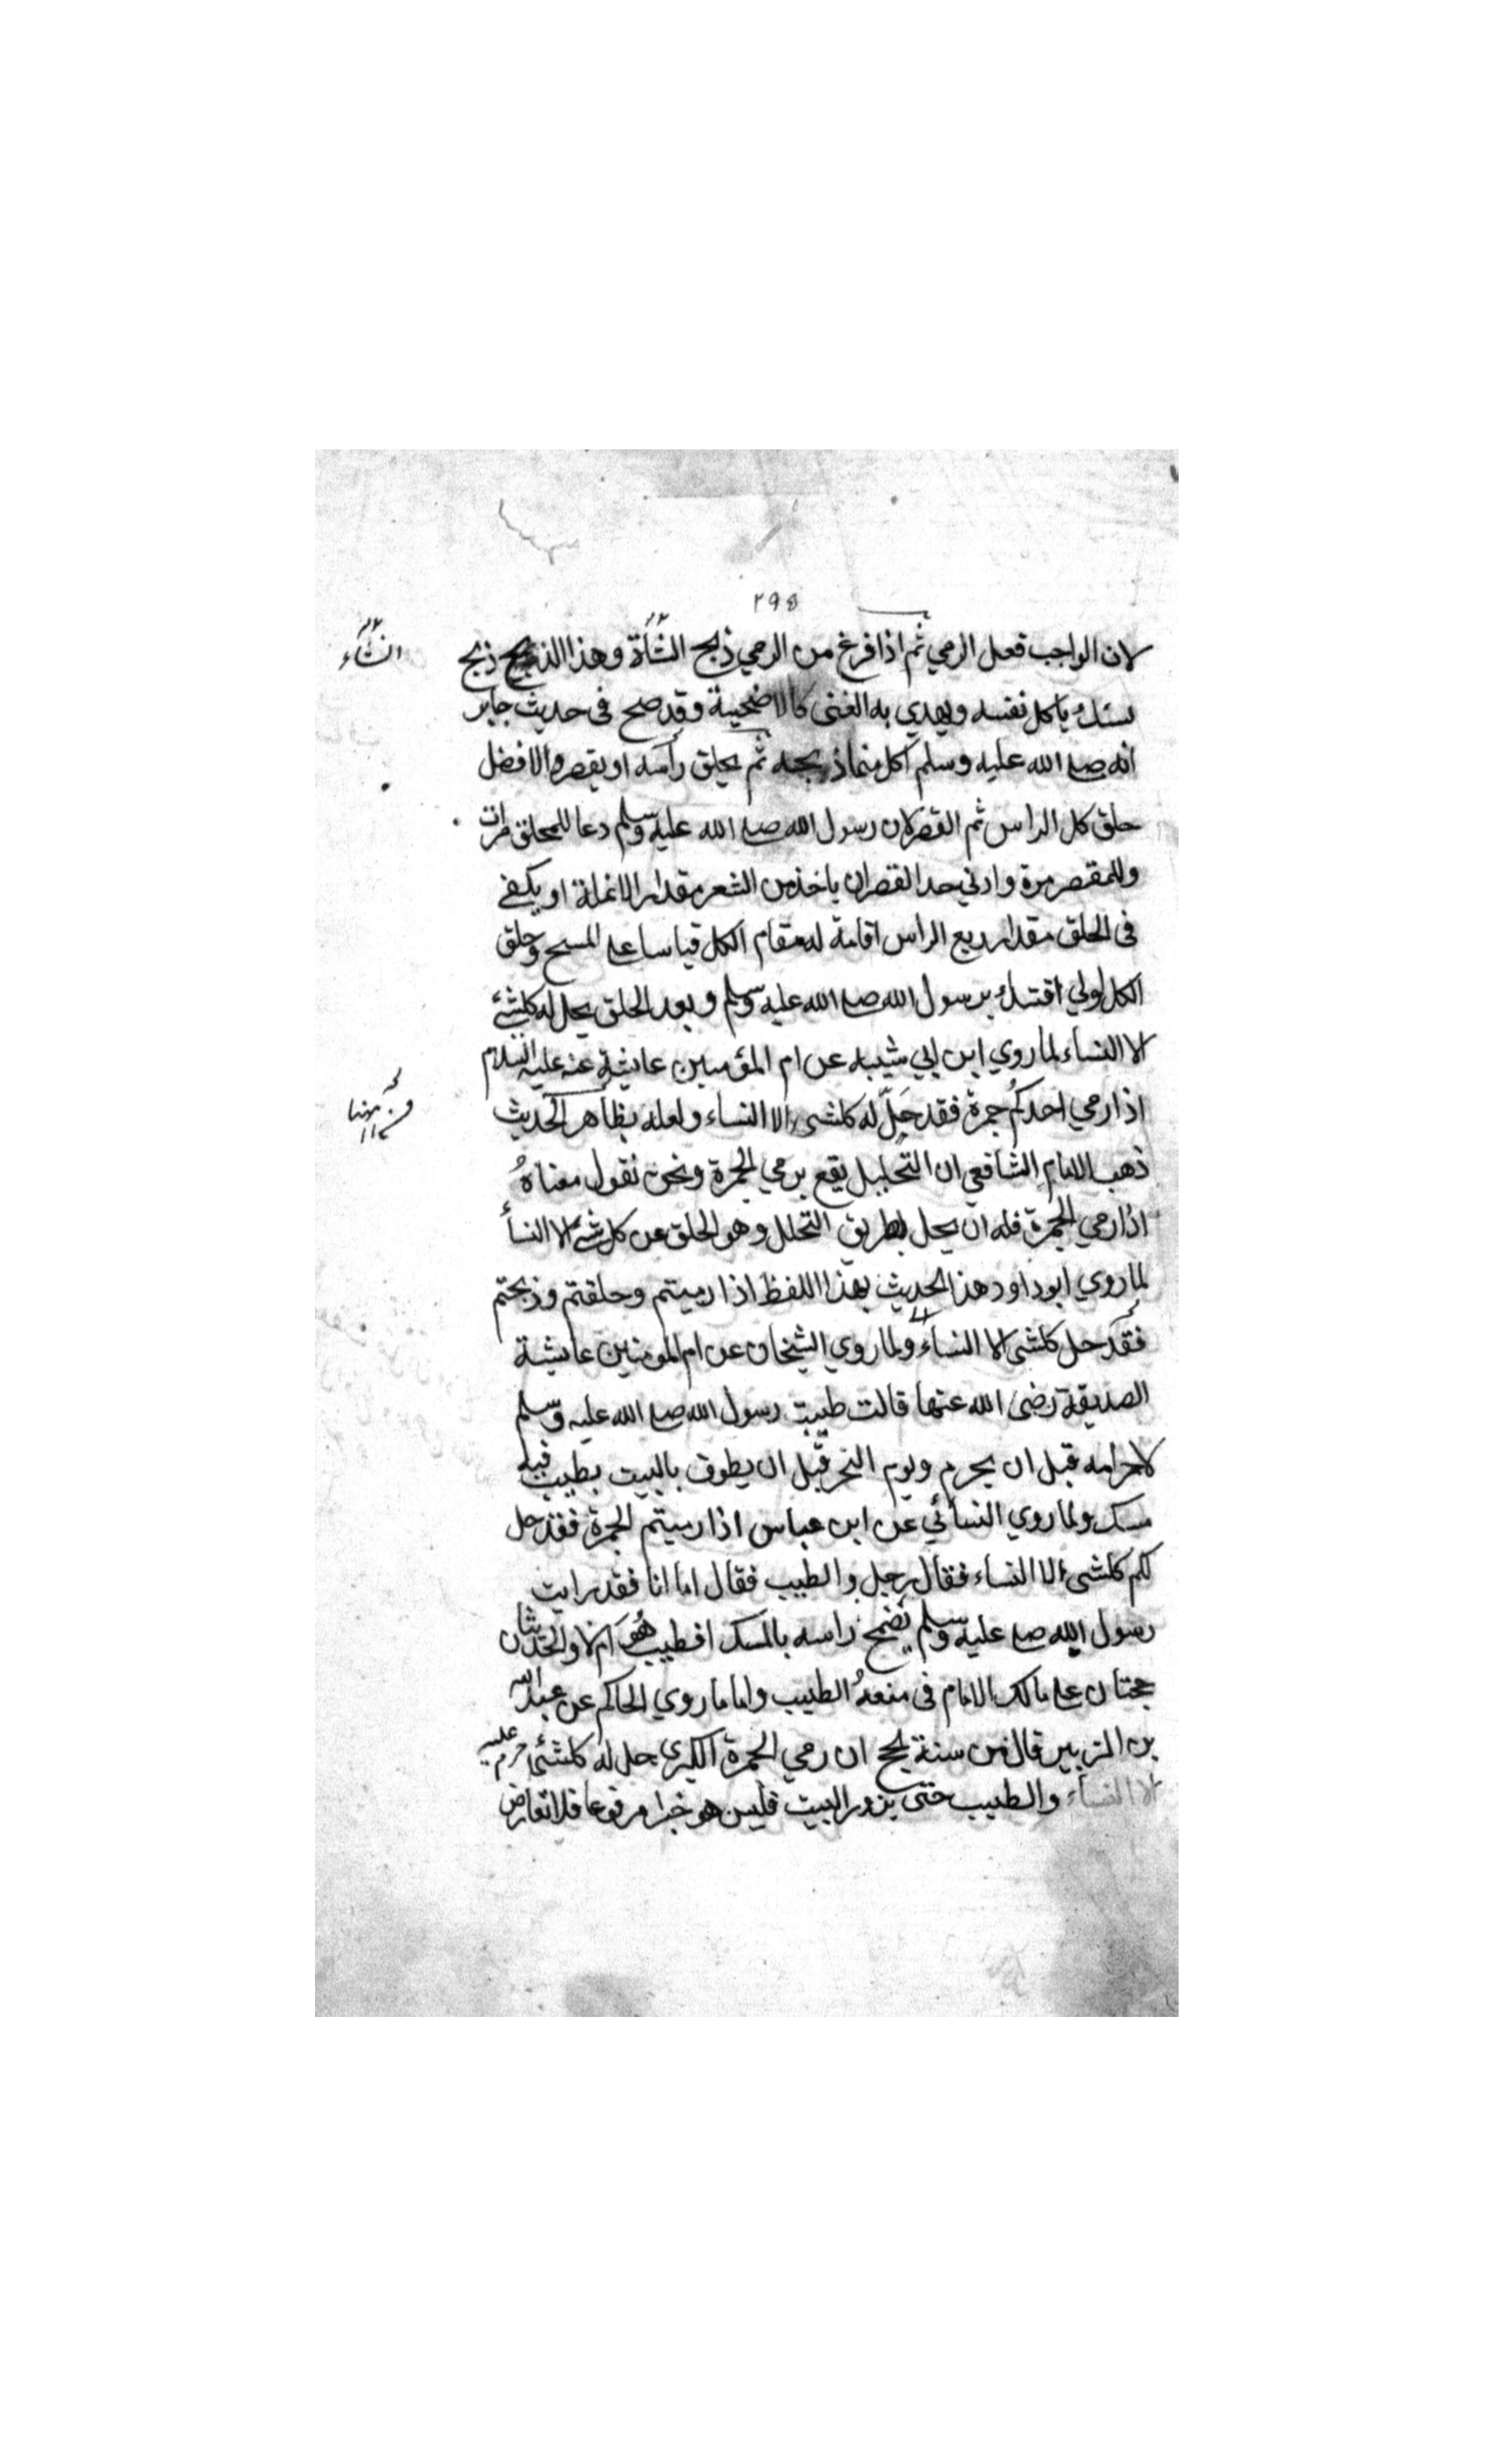 ٢٩٥
لان الواجب فعل الرمي ثم اذا فرغ من الرمي ذبح الشأة وهذا الذبيح ذبح
نسك ياكل نفسه ويهدي به الغنى كالاضحية وقد صح فى حديث جابر
انه صلے الله عليه وسلم اكل مما ذبحه ثم يحلق رأسه او يقصر والافضل
حلق كل الراس ثم القصر لان رسول الله صلے الله عليه وسلم دعا للمحلق مرات
وللمقصر مرة وادني حد القصر ان ياخذ من الشعر مقدار الانملة او يكفے
فى الحلق مقدار ربع الراس اقامة له مقام الكل قياسا علے المسح وحلق
الكل اولي اقتداء برسول الله صلے الله عليه وسلم وبعد الحلق يحل له كلشئ
الا النساء لما روي ابن ابي شيبه عن ام المؤمنين عايشة عنه عليه السلام
اذا رمي احدكم جمرة فقد حَلّ له كلشىء الا النساء ولعله بظاهر الحديث
ذهب الامام الشافعي ان التحليل يقع برمي الجمرة ونحن نقول معناهُ
اذا رمي الجمرة فله ان يحل بطريق التحلل وهو الحلق عن كل شئ الا النسأ
لما روي ابوداود هذا الحديث بهذا اللفظ اذا رميتم وحلقتم وذبحتم
فقد حل كلشى الا النساء ولما روي الشيخان عن ام المومنين عايشة
الصديقة رضى الله عنها قالت طيبت رسول الله صلے الله عليه وسلم
لاحرامه قبل ان يحرم ويوم النحر قبل ان يطوف بالبيت بطيب فيه
مسك ولما روي النسائي عن ابن عباس اذا رميتم الجمرة فقد حل
لكم كلشىء الا النساء فقال رجل والطيب فقال اما انا فقد رايت
رسول الله صلے عليه وسلم يضمخ راسه بالمسك افطيب هُوَ ام لا والحديثان
حجتان علے مالك الامام فى منعهُ الطيب واما ما روي الحاكم عن عبد الله
بن الزبير قال من سنة الحج ان رمي الجمرة الكبرى حل له كلشئ حرم عليه
الا النسأء والطيب حتى يزور البيت فليس هو خبرا مرفوعا فلا تعارض
الشأء